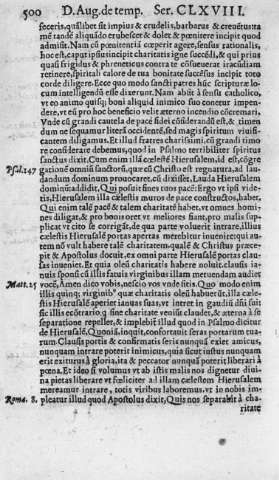 500 D. Aug. de temp. Ser. CLXVIII.
feceris, qualibet sit impius & crudelis, barbarus & cruentus ta
mē tandē aliquādo erubescet & dolet & pœnitere incipit quod
admisit. Nam cū pœnitentiā cœperit agere, sensus rationalis,
hoc est, caput ipsius incipit charitatis igne succēdi, & qui prius
quasi frigidus & phreneticus contra te exercere iracūdiam
retinere, spiritali calore de tua bonitate succēsus incipit toto
corde diligere. Ecce quo modo sancti patres hāc scripturæ lo-
cum intelligendū esse dixerunt. Nam abit à sensu catholico,
vt eo animo quisq; boni aliquid inimico suo conetur impende-
re, vt eū pro hoc beneficio velit æterno incendio concremari.
Vnde cū grandi cautela de pace fidei cōsiderandū est, & timen
dum ne sequamur literā occidentē, sed magis spiritum viuifi-
cantem diligamus. Et illud fratres charissimi, cū grandi timo
re considerare debemus, quod in Psalmo terribiliter spiritus
sanctus dixit. Cum enim illā cœlestē Hierusalem, id est, cōgre
Psal. 147 gationē omniū sanctorū, quæ cū Christo est regnatura, ad lau-
dandum dominum prouocaret, œ dixisset, Lauda Hierusalem
dominū: addidit, Qui posuit fines tuos pacē: Ergo vt ipsi vide-
tis, Hierusalem illa cœlestis muros de pace constructos habet,
Qui enim talē pacē & talem charitatē habet, vt omnes homi-
nes diligat, & pro bonis oret vt meliores fiant, pro malis sup-
plicat vt cito se corrigāt, de qua parte voluerit intrare, illius
cœlestis Hierusalē portas apertas merebitur inuenire: qui au-
tem nō vult habere talē charitatem, qualē & Christus præce-
pit & Apostolus docuit, ex omni parte Hierusalē portas clau-
sas inueniet. Et quia oleū charitatis habere noluit, clausis ia-
nuis sponsi cū illis fatuis virginibus illam merendam audiet
Matt. 25 vocē, Amen dico vobis, nescio vos vnde sitis. Quo modo enim
illis quinq; virginibᵒ quæ charitatis oleū habuerūt, illa cœle-
stis Hierusalē aperiet ianuas suas, vt intret in gaudiū dñi sui:
sic illis ecōtrario, q sine charitate venisse claudet, & æterna à se
separatione repellet, & implebit illud quod in Psalmo dicitur
de Hierusalē, Quoniā, inquit, confortauit seras portarum tua-
rum. Clausis portis & confirmatis seris nunquā exiet amicus,
nunquam intrare poterit inimicus, quia sicut iustus nunquam
erit exiturus à gloria, ita & peccator nunquā poterit liberari à
pœna. Et ideo si volumus vt ab istis malis nos dignetur diui-
na pietas liberare vt fœliciter ad illam cœlestem Hierusalem
mereamur intrare, totis viribus laboremus, vt in nobis im-
Roma. 8 pleatur illud quod Apostolus dixit, Quis nos separabit à cha-
ritate